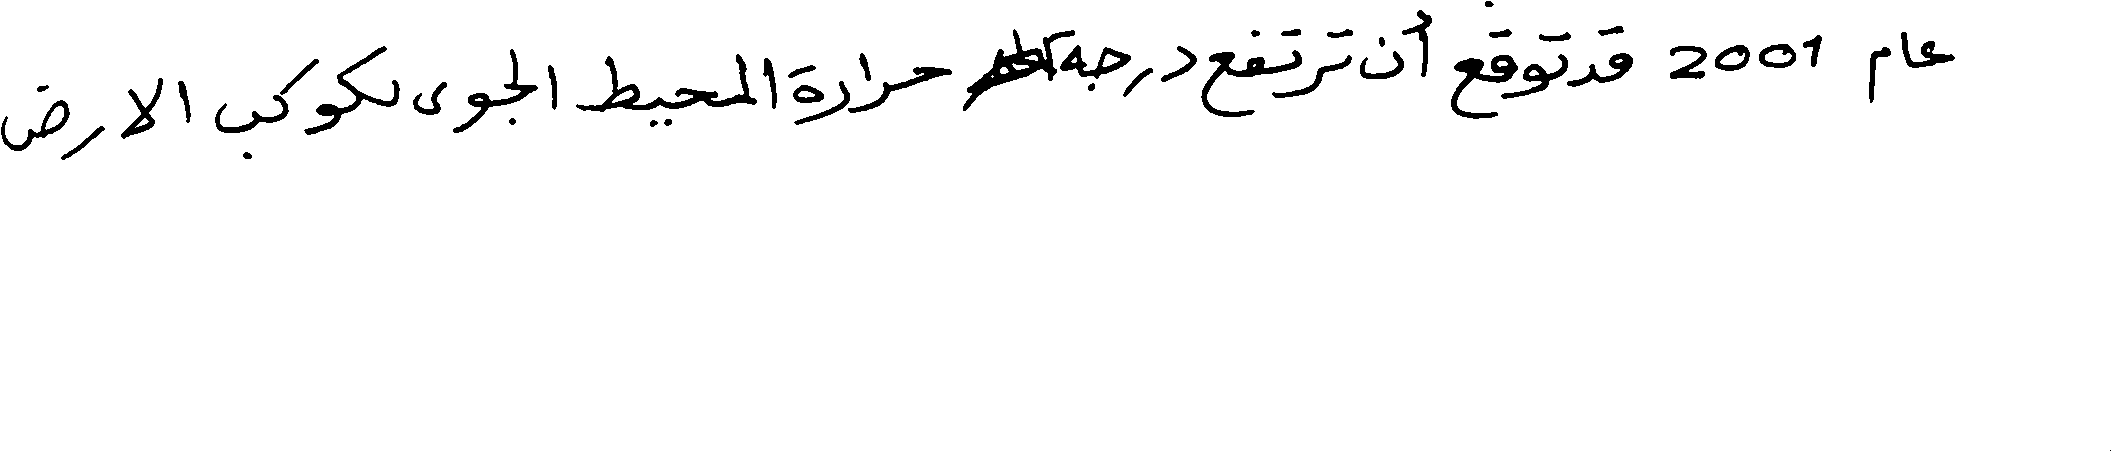 عام 2001 قد توقع أن ترتفع درجة حرارة المحيط الجوى لكوكب الارض